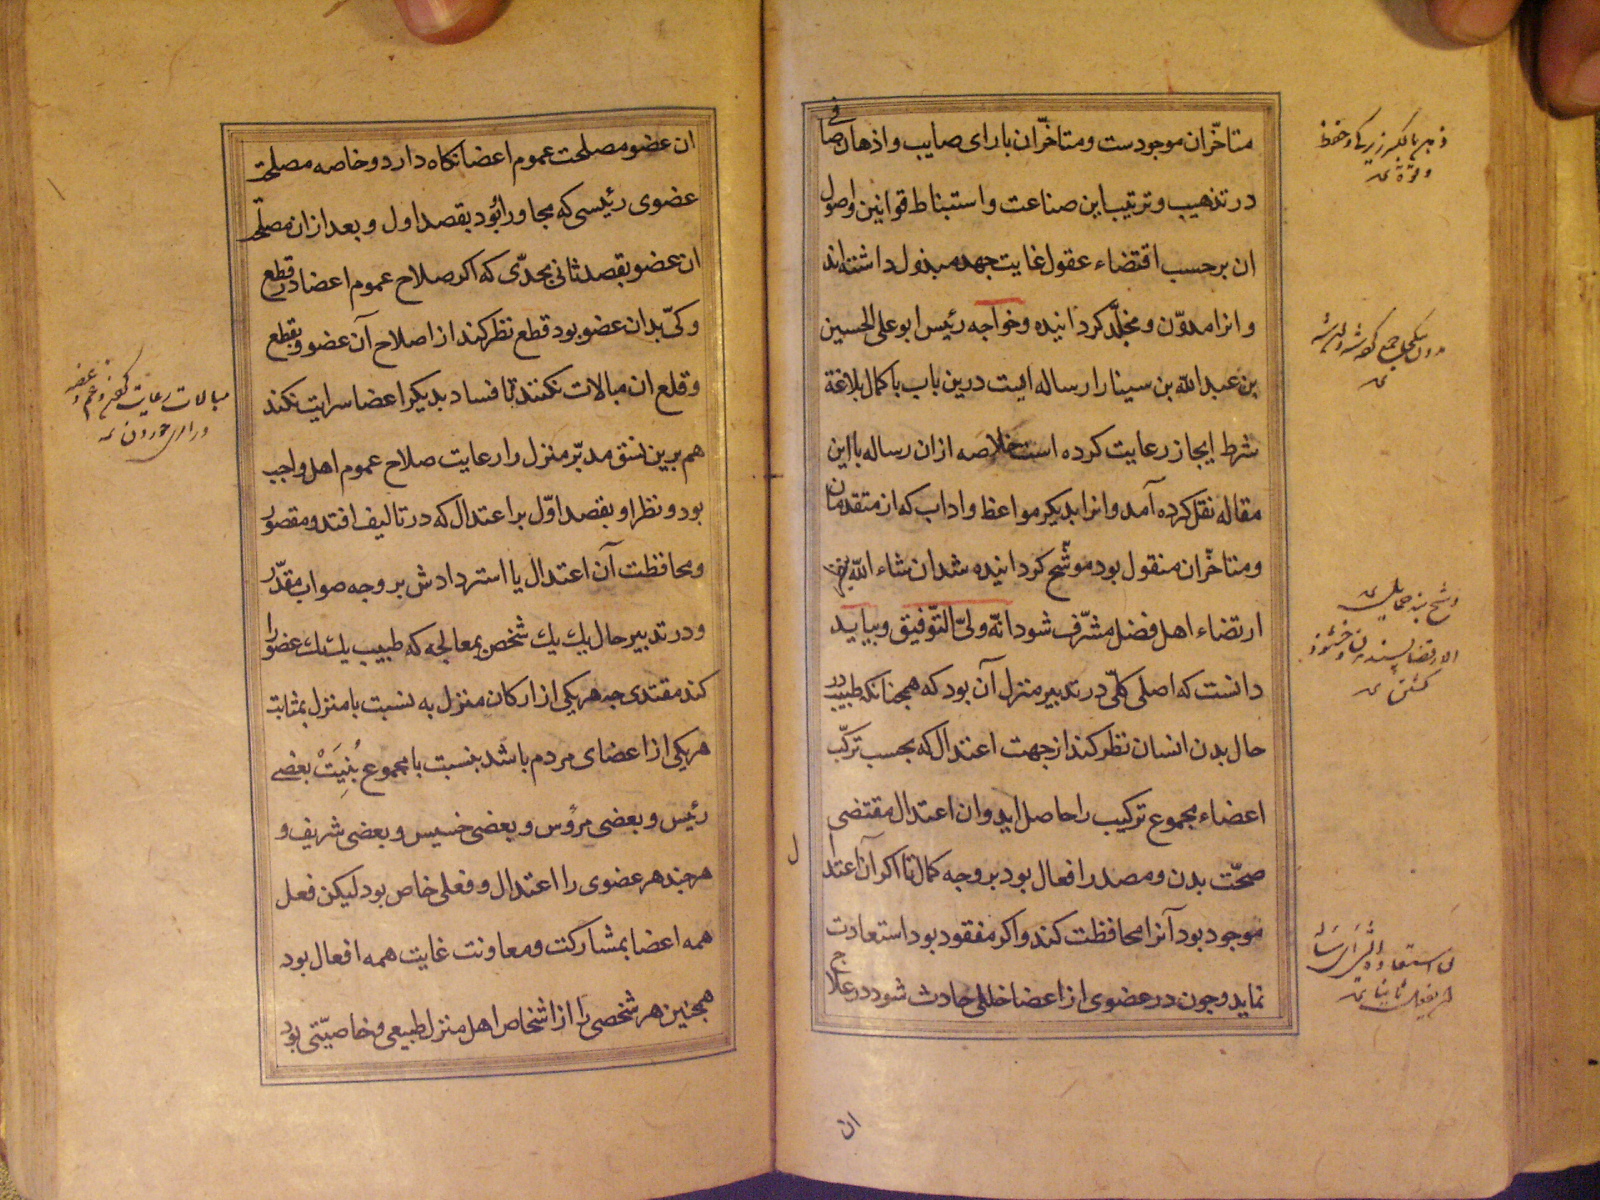 متاخّران موجودست ومتاخّران بارای صایب واذهان صافی
در تذهیب وترتیب این صناعت واستنباط قوانین واصول
ان برحسب اقتضاء عقول غایت جهد مبذول داشته اند
وانرا مدوّن ومخلّد کردانیده وخواجه رئیس ابو علی الحسین
بن عبد الله بن سینا را رساله ایست درین باب با کمال بلاغة
شرط ایجاز رعایت کرده است خلاصه از ان رساله با این
مقاله نقل کرده آمد وانرا بدیکر مواعظ واداب که از متقدمان
ومتاخّران منقول بود موشّح کردانیده شد ان شاء الله
ارتضاء اهل فضل مشرّف شود انّه ولیّ التّوفیق وبباید
دانست که اصلی کلّی در تدبیر منزل آن بود که همجنانکه طبیب در
حال بدن انسان نظر کند از جهت اعتدال که بحسب ترکّب
اعضاء مجموع ترکیب را حاصل اید وان اعتدال مقتضی
صحّت بدن ومصدر افعال بود بر وجه کمال تا اکر آن اعتدال
موجود بود آنرا محافظت کند واکر مفقود بود استعادت
نماید وجون در عضوی از اعضا خللی حادث شود در علاج
ان
ان عضو مصلحت عموم اعضا نکاه دارد وخاصه مصلحت
عضوی رئیسی که مجاور او بُود بقصد اول وبعد از ان مصلحت
ان عضو بقصد ثانی بحدّی که اکر صلاح عموم اعضا در قطع
وکیّ بدان عضو بود قطع نظر کند از اصلاح آن عضو وبقطع
وقلع ان مبالات نکند تا فساد بدیکر اعضا سرایت نکند
هم برین نسق مدبّر منزل را رعایت صلاح عموم اهل واجب
بود ونظر او بقصد اوّل بر اعتدال که در تالیف افتد مقصور
ومحافظت آن اعتدال یا استردادش بر وجه صواب مقدّر
ودر تدبیر حال یك یك شخص بمعالجه که طبیب یك یك عضو را
کند مقتدی جه هر یکی از ارکان منزل به نسبت با منزل بمثابت
هر یکی از اعضای مردم باشد بنسبت با مجموع بُنِیَتْ بعضی
رئیس وبعضی مرؤس وبعضی خسیس وبعضی شریف و
هر جند هر عضوی را اعتدال وفعلی خاص بود لیکن فعل
همه اعضا بمشارکت ومعاونت غایت همه افعال بود
همجنین هر شخصی را از اشخاص اهل منزل طبیعی وخاصیّتی بود